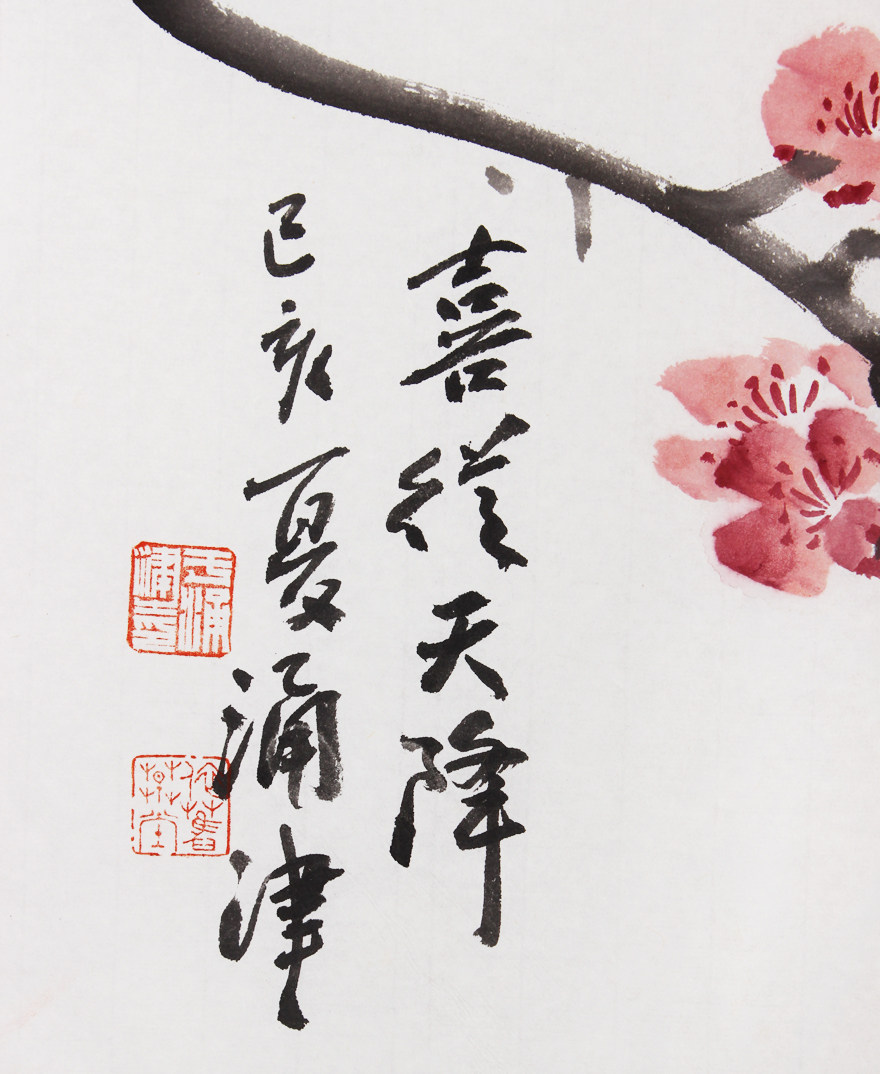 喜從天降
己亥夏涌津